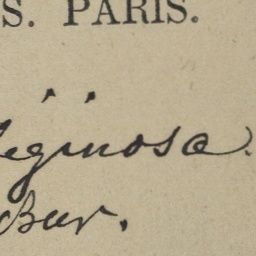 S. PARIS.
eginosa.
Bur.